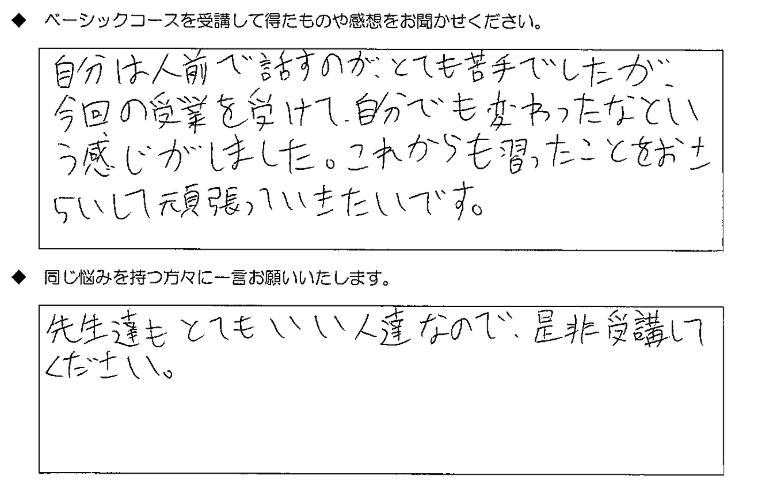 ◆ ベーシックコースを受講して得たものや感想をお聞かせください。
自分は人前で話すのが、とても苦手でしたが、
今回の受業を受けて、自分でも変わったなとい
う感じがしました。これからも習ったことをおさ
らいして頑張っていきたいです。
◆ 同じ悩みを持つ方々に一言お願いいたします。
先生達もとてもいい人達なので、是非受講して
ください。